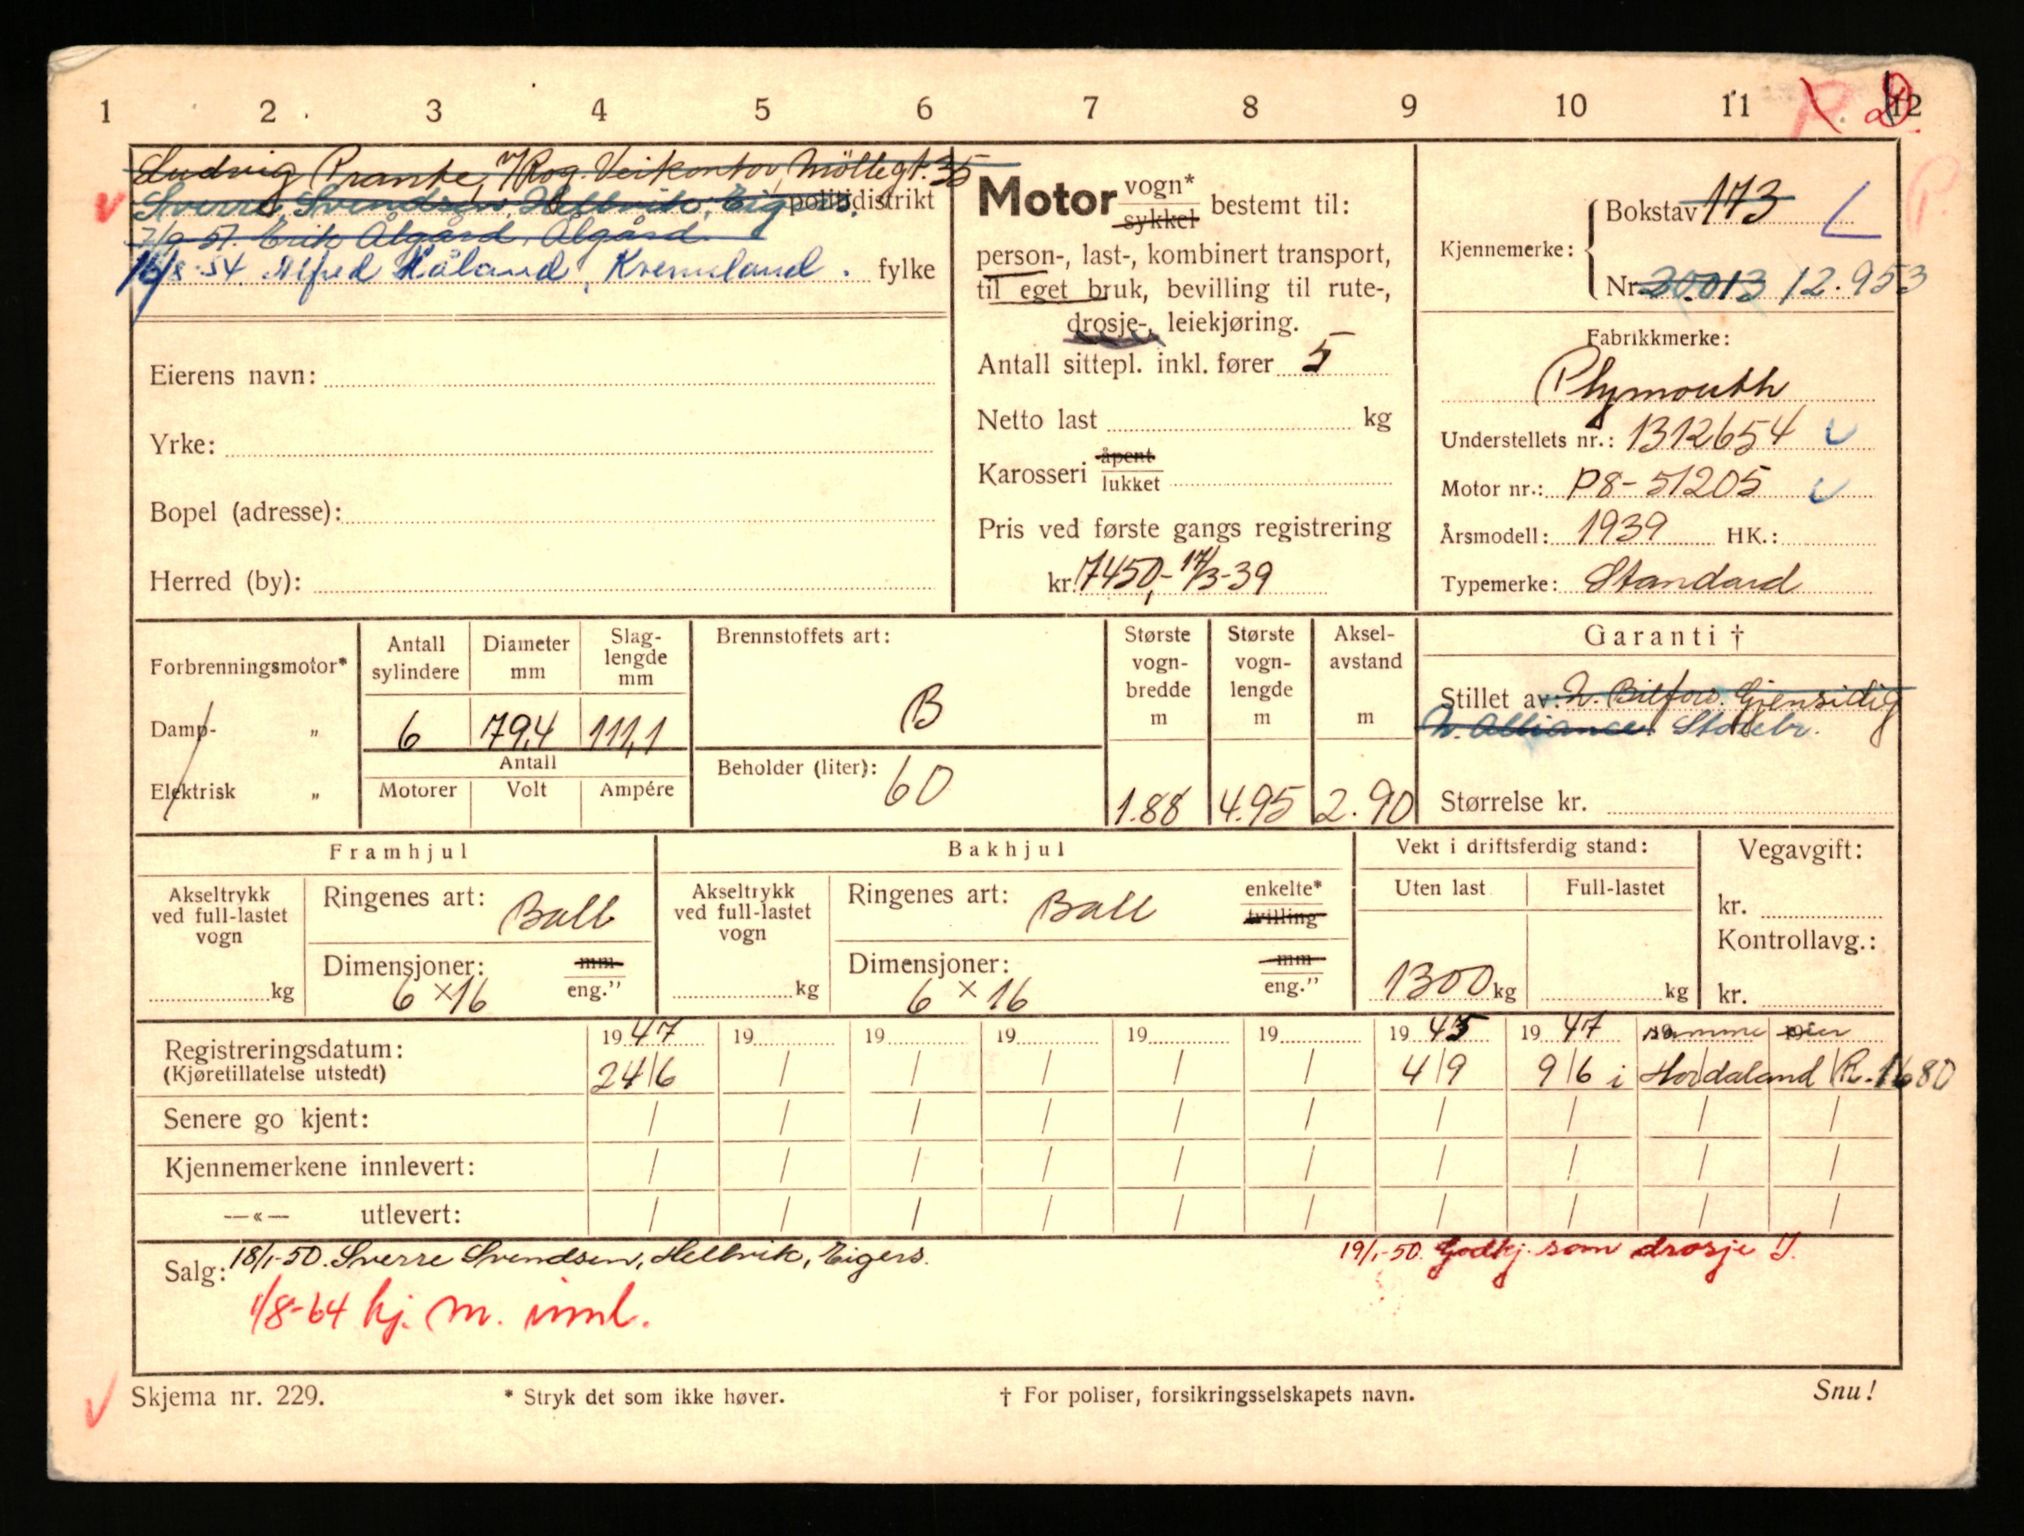 1 2 3 4 5 6 7 8 9 10 11 12
Ludvig Prante, v/Rog. Veikontor, Möllegt. 35
Sverre Svendsen, Hellvik, Eig politidistrikt
7/9 51. Erik Ålgård, Ålgård.
16/8-54. Alfred Håland, Kvernaland. fylke
Eierens navn:
Yrke:
Bopel (adresse):
Herred (by):
Motor vogn* sykkel bestemt til:
person-, last-, kombinert transport,
til eget bruk, bevilling til rute-,
drosje-, leiekjøring.
Antall sittepl. inkl. fører 5
Netto last kg
Karosseri åpent lukket
Pris ved første gangs registrering
kr. 7450,- 17/3-39
Kjennemerke: Bokstav 173 L
Nr. 20.013 12.953
Fabrikkmerke:
Plymouth
Understellets nr.: 1312654
Motor nr.: P8-51205
Årsmodell: 1939 HK.:
Typemerke: Standard
Forbrenningsmotor*
Damp- „
Elektrisk „
Antall sylindere 6
Diameter mm 79,4
Slag-lengde mm 111,1
Antall
Motorer Volt Ampére
Brennstoffets art:
B
Beholder (liter): 60
Største vogn-bredde m 1.88
Største vogn-lengde m 4.95
Aksel-avstand m 2.90
Garanti †
Stillet av: N. Bilfors. Gjensidig
N. Alliance. Storebr.
Størrelse kr.
Framhjul
Akseltrykk ved full-lastet vogn kg
Ringenes art: Ball
Dimensjoner: mm eng."
6 x 16
Bakhjul
Akseltrykk ved full-lastet vogn kg
Ringenes art: Ball enkelte* tvilling
Dimensjoner: mm eng."
6 x 16
Vekt i driftsferdig stand:
Uten last Full-lastet
1300 kg kg
Vegavgift:
kr.
Kontrollavg.:
kr.
Registreringsdatum: 19 47 19 19 19 19 19 19 45 19 47 samme eier
(Kjøretillatelse utstedt) 24/6 / / / / / 4/9 9/6 i Hordaland R.1680
Senere go kjent:
Kjennemerkene innlevert:
—«— utlevert:
Salg: 18/1-50. Sverre Svendsen, Hellvik, Eigers.
19/1-50. Godkj. som drosje
1/8-64 kj. m. innl.
Skjema nr. 229. * Stryk det som ikke høver. † For poliser, forsikringsselskapets navn. Snu!